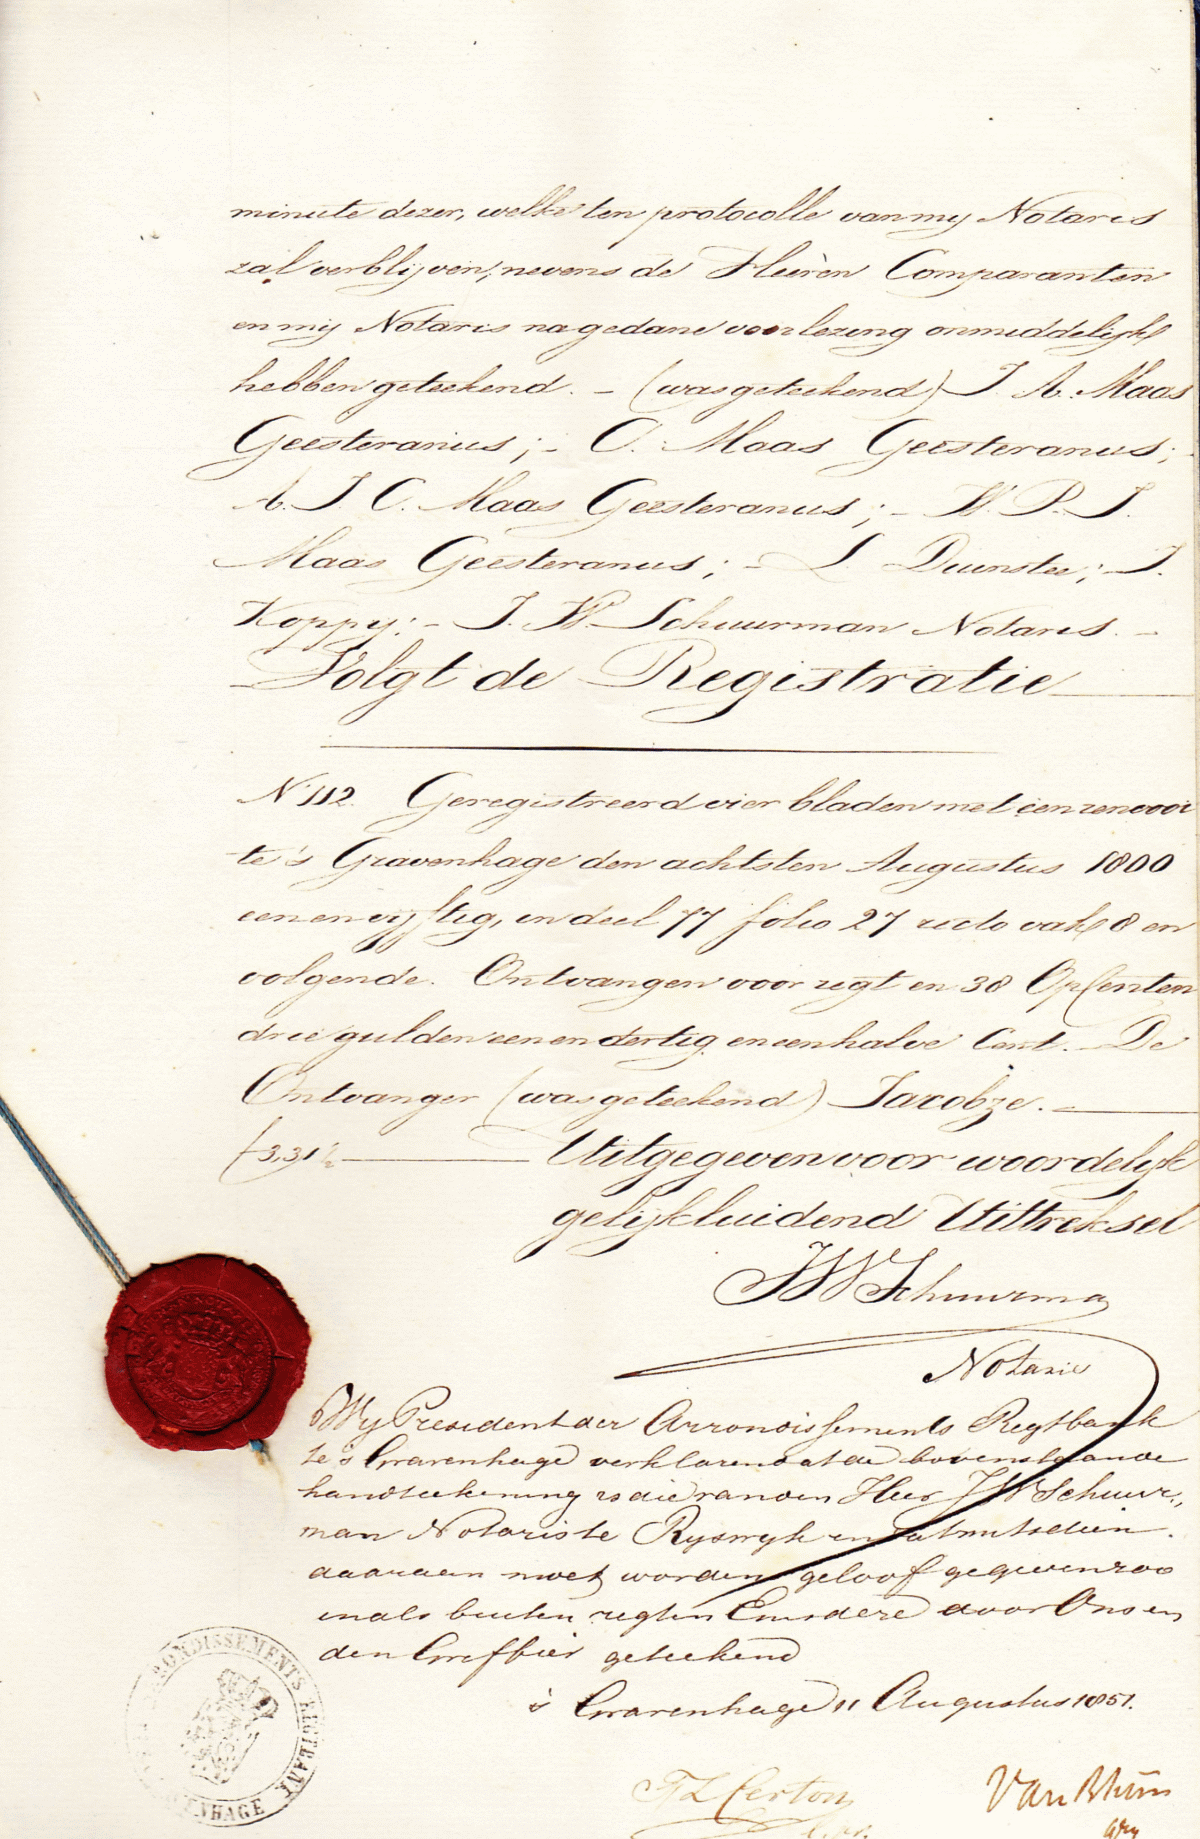 minute dezer, welke ten protocolle van my Notaris
zal verblijven, nevens de Heeren Comparanten
en mij Notaris na gedane voorlezing onmiddelijk
hebben geteekend. – (was geteekend) J. A. Maas
Geesteranus; – C. Maas Geesteranus;
A. J. C. Maas Geesteranus; – W. P. J.
Maas Geesteranus; – L. Duinstee; – J.
Koppy; – J. W. Schuurman Notaris. –
Volgt de Registratie
N 112. Geregistreerd vier bladen met een renvooi
te 's Gravenhage den achtsten Augustus 1800
een en vijftig, in deel 77 folio 27 recto vak 8 en
volgende. Ontvangen voor regt en 38 OpCenten
drie gulden een en dertig en een halve Cent. – De
Ontvanger (was geteekend) Jacobze.
f 3,31½ Uitgegeven voor woordelijk
gelijkluidend Uittreksel
JW Schuurman
Notaris
Wy President der Arrondissements Regtbank
te 's Gravenhage verklaren dat de bovenstaande
handteekening is die van den Heer JW Schuur-
man Notaris te Ryswyk en
daaraan moet worden geloof gegeven zoo
in als buiten regten En is deze door Ons en
den Griffier geteekend
's Gravenhage 11 Augustus 1851.
ARRONDISSEMENTS REGTBANK
GRAVENHAGE